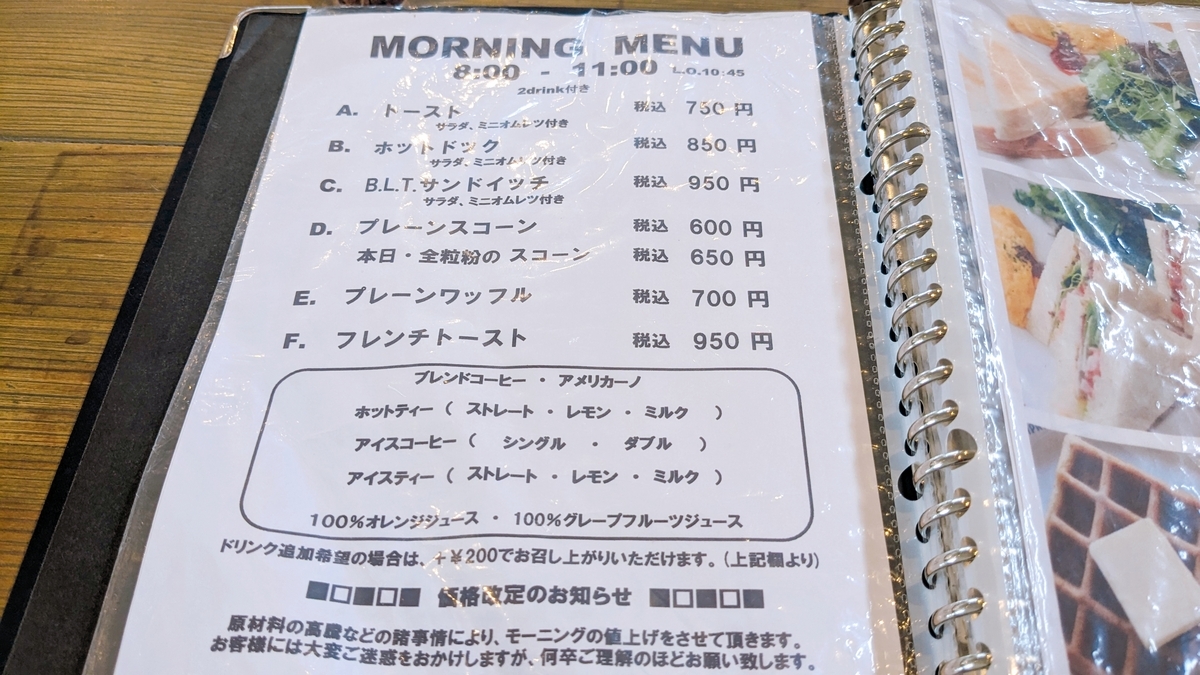 MORNING MENU
8:00 - 11:00 L.O.10:45
2drink付き
A. トースト 税込 750 円
サラダ、ミニオムレツ付き
B. ホットドック 税込 850 円
サラダ、ミニオムレツ付き
C. B.L.T.サンドイッチ 税込 950 円
サラダ、ミニオムレツ付き
D. プレーンスコーン 税込 600 円
本日・全粒粉の スコーン 税込 650 円
E. プレーンワッフル 税込 700 円
F. フレンチトースト 税込 950 円
ブレンドコーヒー ・ アメリカーノ
ホットティー ( ストレート ・ レモン ・ ミルク )
アイスコーヒー ( シングル ・ ダブル )
アイスティー ( ストレート ・ レモン ・ ミルク )
100%オレンジジュース ・ 100%グレープフルーツジュース
ドリンク追加希望の場合は、+¥200でお召し上がりいただけます。(上記欄より)
■□■□■ 価格改定のお知らせ ■□■□■
原材料の高騰などの諸事情により、モーニングの値上げをさせて頂きます。
お客様には大変ご迷惑をおかけしますが、何卒ご理解のほどお願い致します。